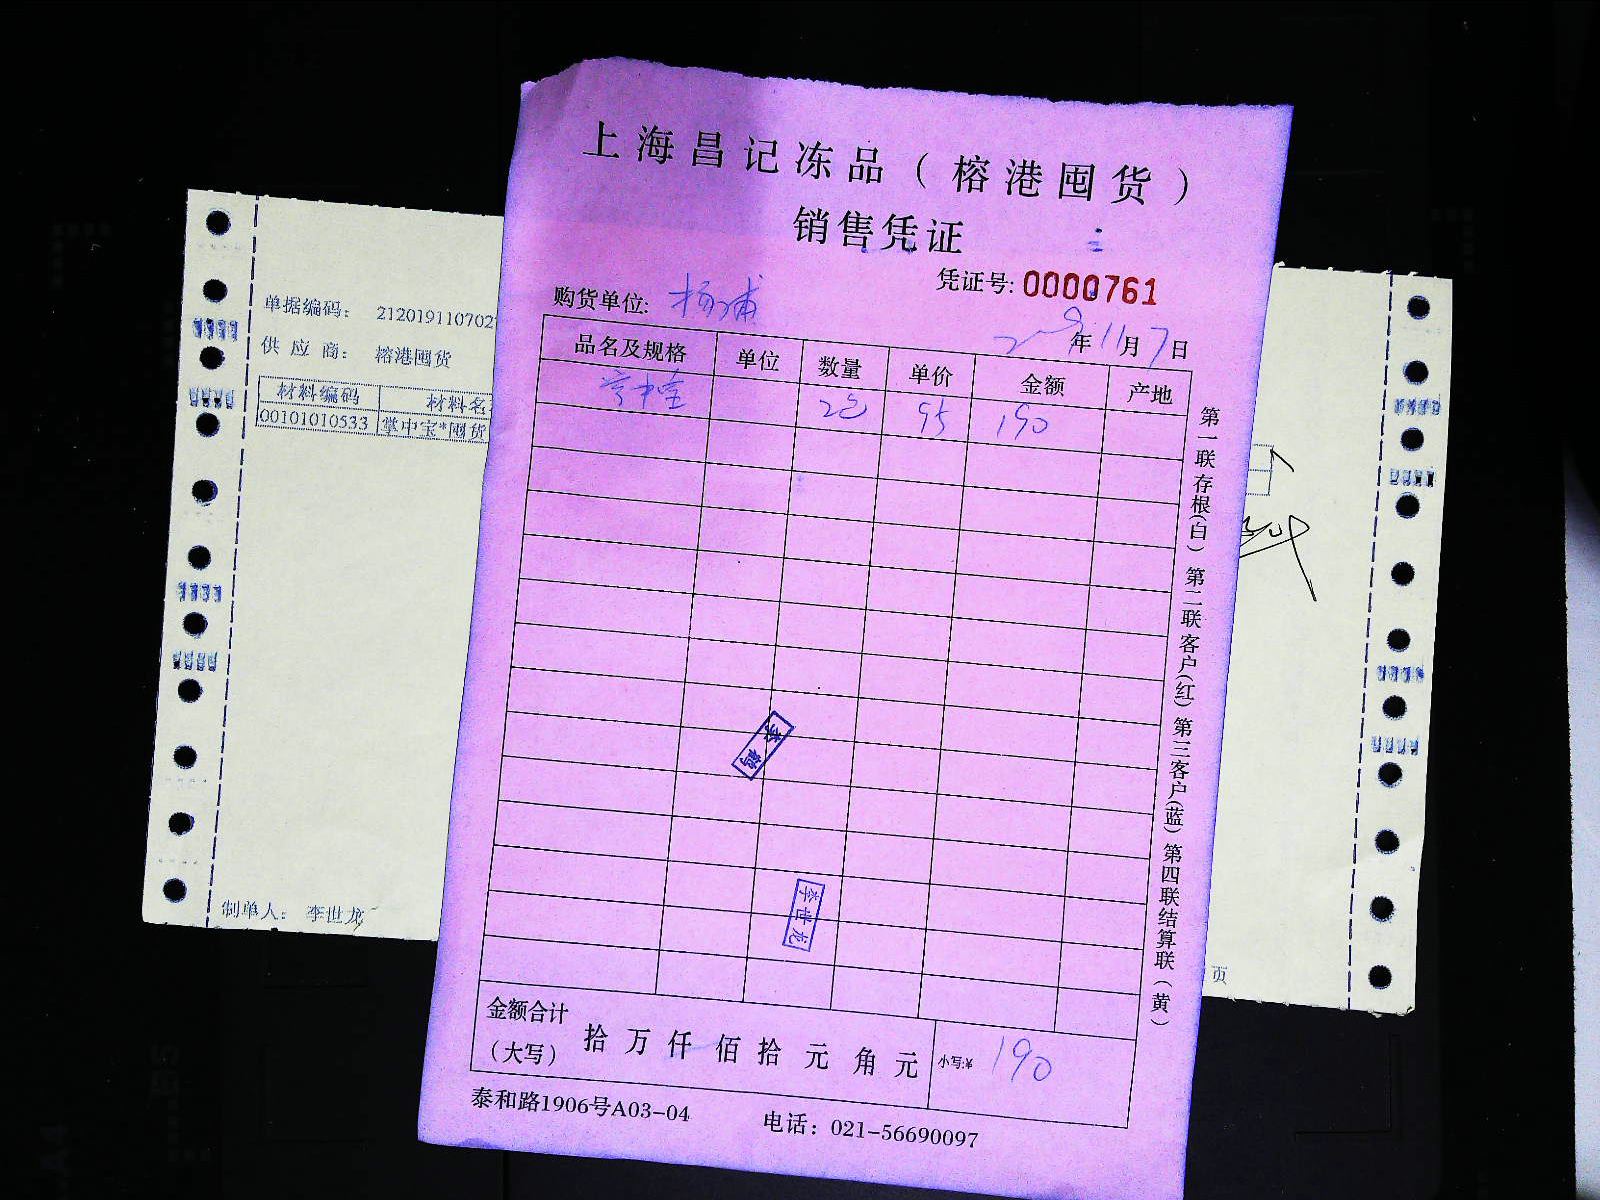 上海昌记冻品（榕港囤货）
销售凭证
凭证号: 0000761
购货单位: 杨浦
年11月7日
品名及规格 单位 数量 单价 金额 产地
掌中宝 2包 95 190
第一联存根(白) 第二联客户(红) 第三客户(蓝) 第四联结算联(黄)
李鹤
李世龙
金额合计
（大写） 拾万仟佰拾元角元 小写:¥ 190
泰和路1906号A03-04 电话：021-56690097
单据编码： 212019110702
供应商： 榕港囤货
材料编码 材料名
00101010533 掌中宝*囤货
制单人： 李世龙
页